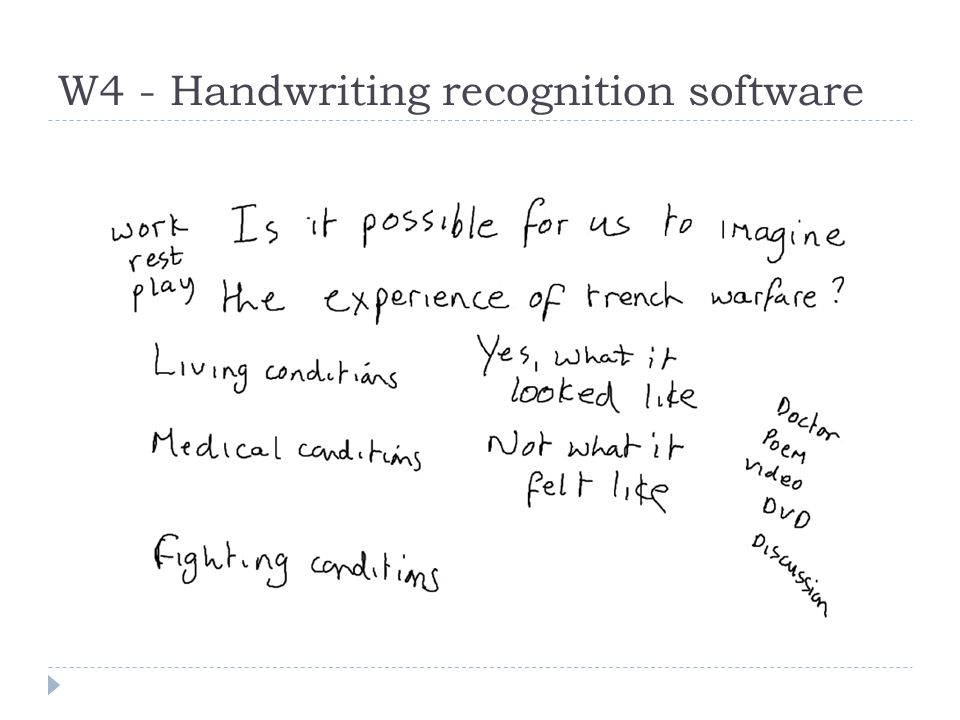 W4 - Handwriting recognition software
work
rest
play
Is it possible for us to imagine
the experience of trench warfare?
Living conditions
Yes, what it
looked like
Medical conditions
Not what it
felt like
Fighting conditions
Doctor
Poem
video
DVD
Discussion